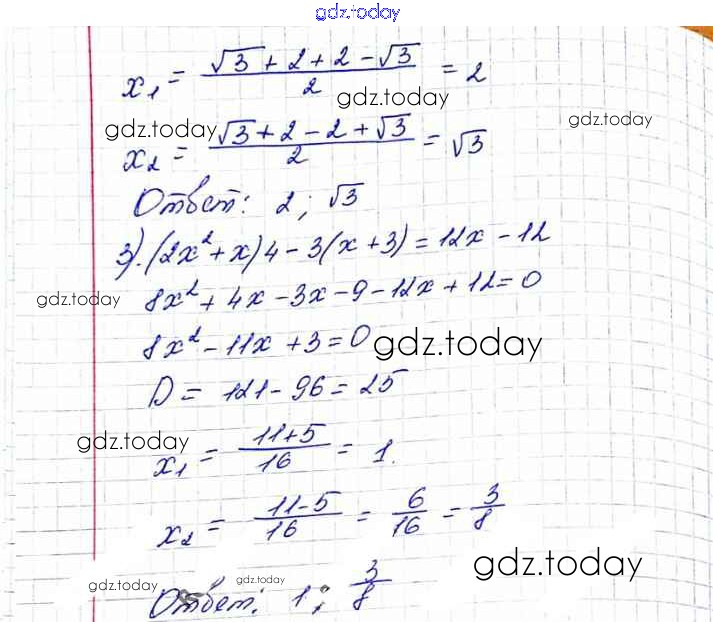 gdz.today
x₁ = (√3 + 2 + 2 - √3)/2 = 2
gdz.today
gdz.today
gdz.today
x₂ = (√3 + 2 - 2 + √3)/2 = √3
Ответ: 2; √3
3). (2x² + x)4 - 3(x + 3) = 12x - 12
gdz.today
8x² + 4x - 3x - 9 - 12x + 12 = 0
8x² - 11x + 3 = 0
gdz.today
D = 121 - 96 = 25
gdz.today
x₁ = (11+5)/16 = 1.
x₂ = (11-5)/16 = 6/16 = 3/8
gdz.today
gdz.today
gdz.today
Ответ: 1; 3/8